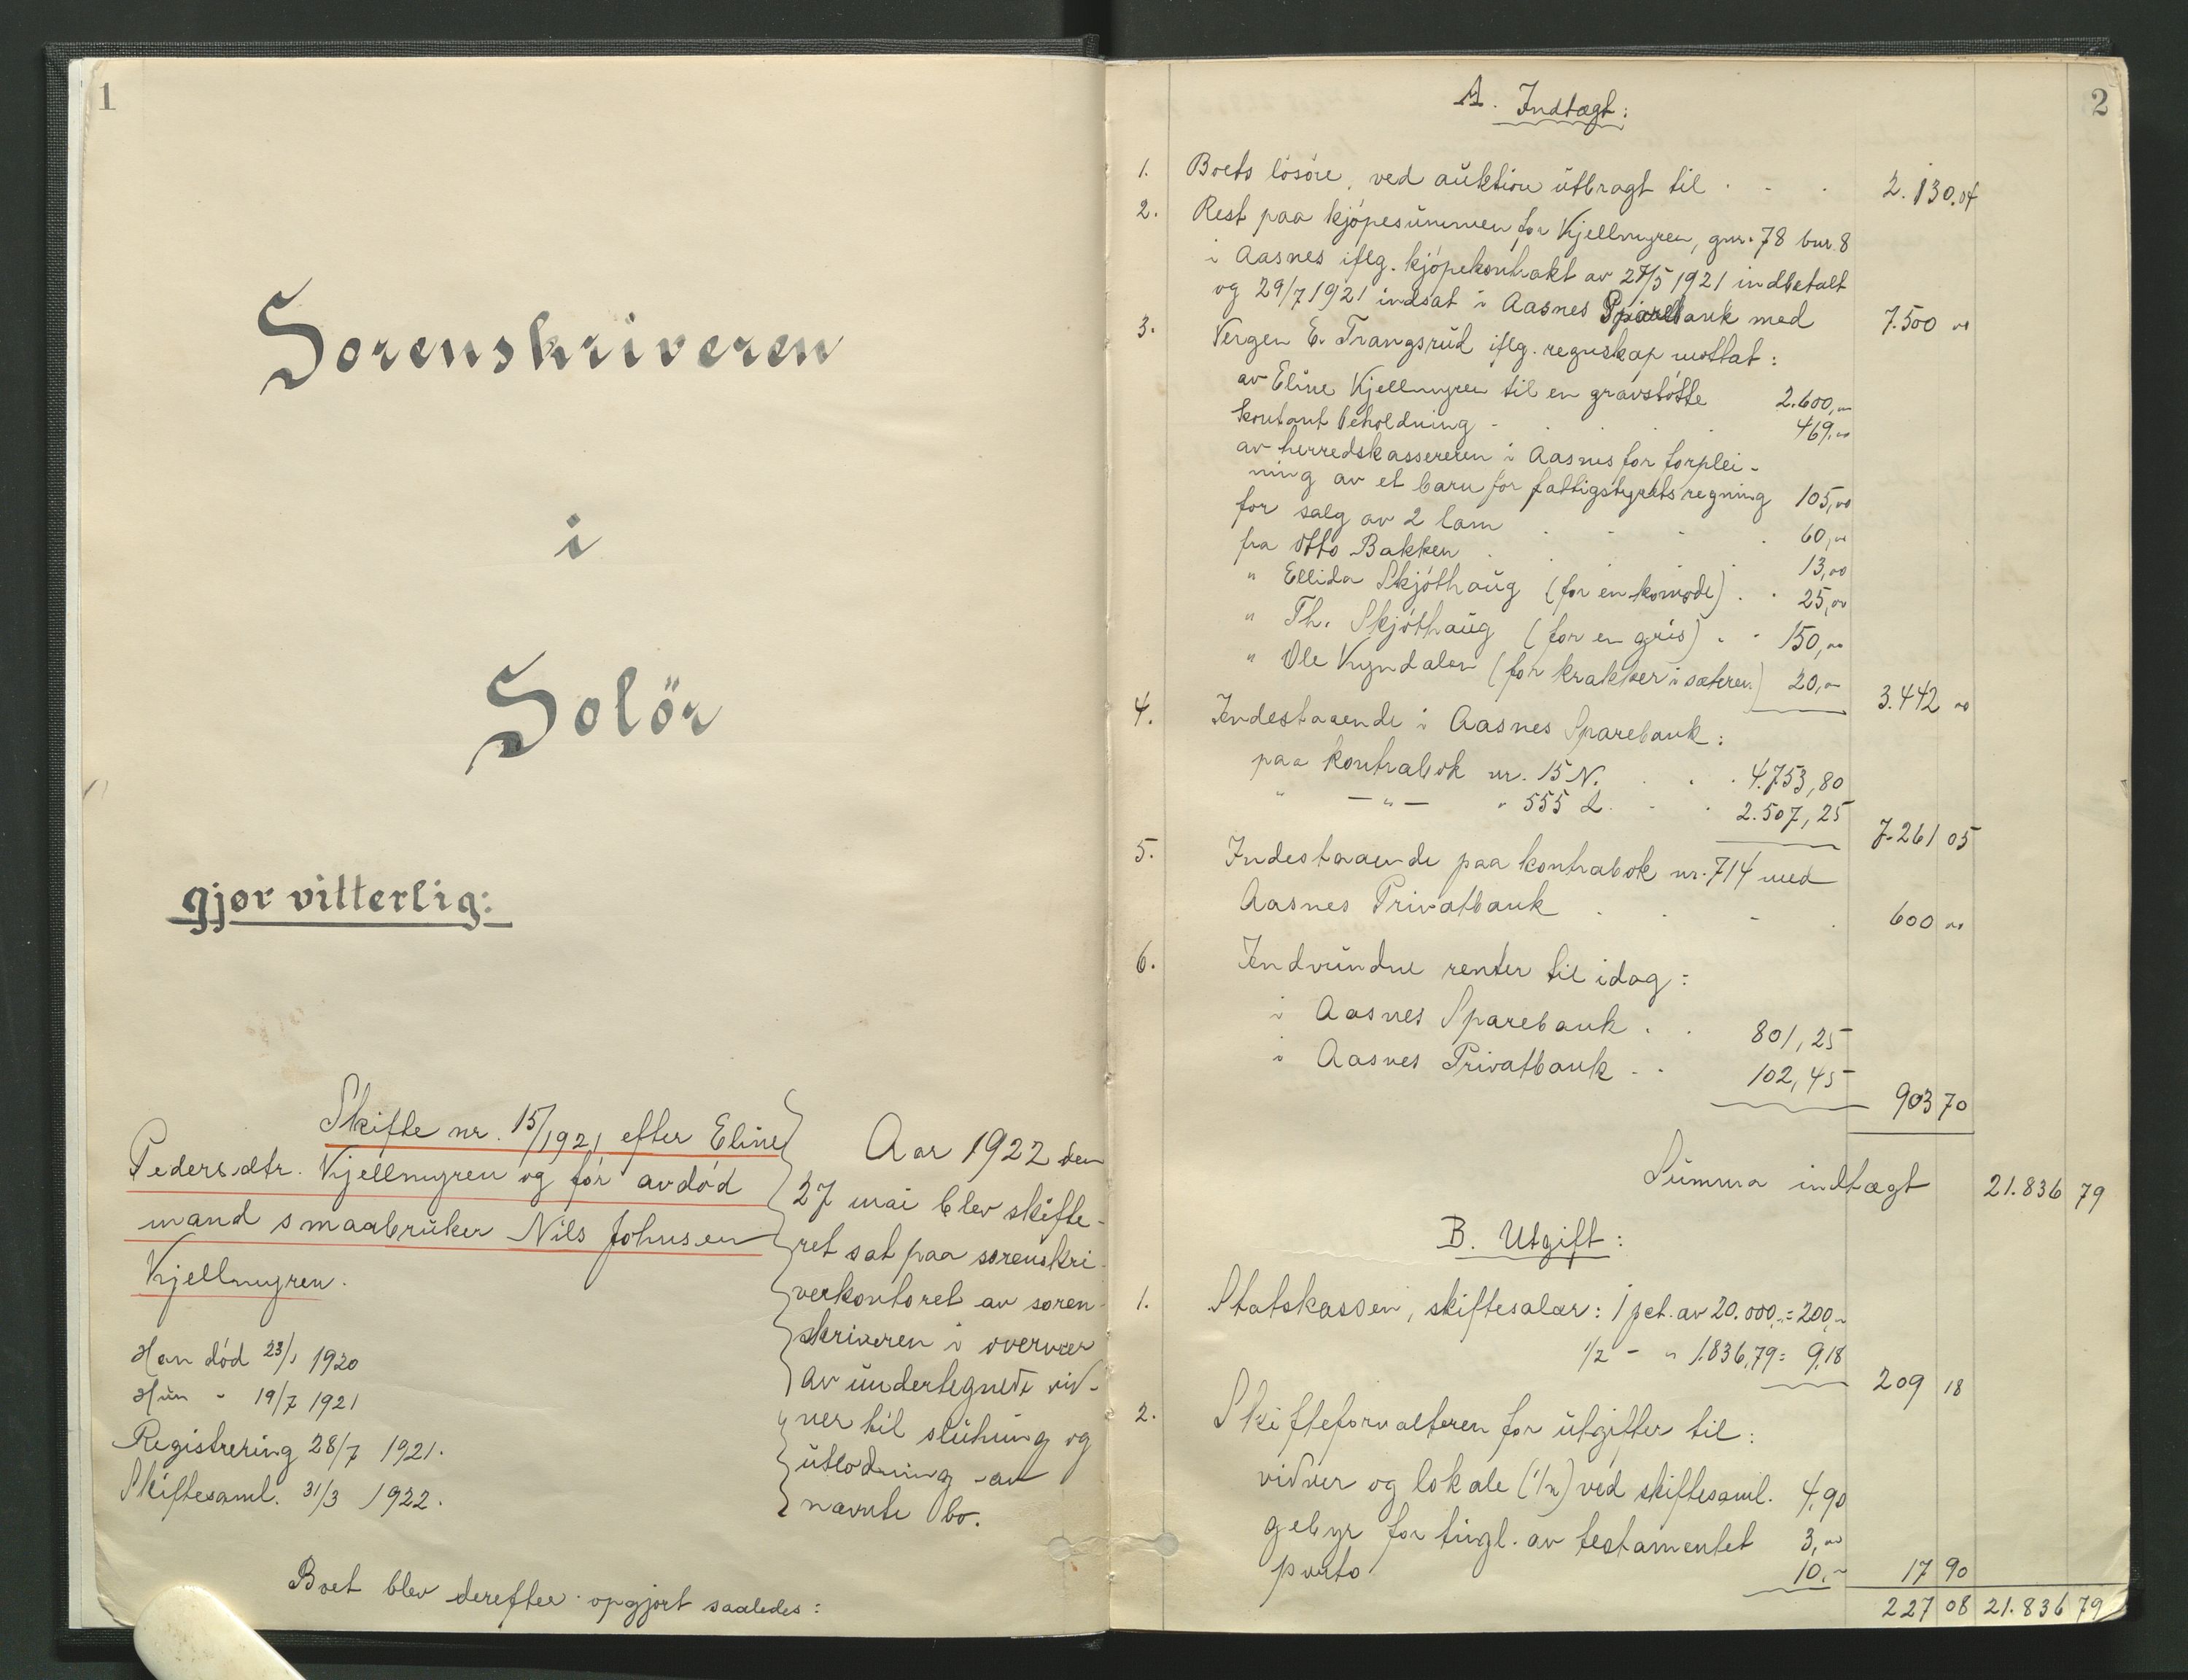 1
Sorenskriveren
i
Solör
gjør vitterlig:
Skifte nr. 15/1921 efter Eline
Pedersdtr. Kjellmyren og før avdød
mand smaabruker Nils Johnsen
Kjellmyren.
Han död 23/1 1920
Hun - 19/7 1921
Registrering 28/7 1921.
Skiftesaml. 31/3 1922.
Aar 1922 den
27 mai blev skifte-
ret sat paa sorenskri-
verkontoret av soren-
skriveren i overvær
av undertegnede vid-
ner til slutning og
utlodning av
nævnte bo.
Boet blev derefter opgjort saaledes:
2
A. Indtægt:
1. Boets lösöre, ved auktion utbragt til . - . 2.130.04
2. Rest paa kjöpesummen for Kjellmyren, gnr. 78 bnr. 8
i Aasnes iflg. kjöpekontrakt av 27/5 1921 indbetalt
og 29/7 1921 indsat i Aasnes Sparebank med 7.500 00
3. Vergen E. Trangsrud iflg. regnskap mottat:
av Eline Kjellmyren til en gravstötte 2.600,00
kontant beholdning - . . . 469,00
av herredskassereren i Aasnes for forplei-
ning av et barn for fattigstyrets regning 105,00
for salg av 2 lam . - - . 60,00
fra Otto Bakken . . . . 13,00
" Ellida Skjöthaug (for en komode) . . 25,00
" Th. Skjöthaug (for en gris) . . 150,00
" Ole Kyndalen (for krakker i sæteren) 20,00 3.442 00
4. Indestaaende i Aasnes Sparebank:
paa kontrabok nr. 15 N. . . . 4.753,80
" —"— " 555 L. . . 2.507,25 7.261 05
5. Indestaaende paa kontrabok nr. 714 med
Aasnes Privatbank . . - . 600 00
6. Indvundne renter til idag:
i Aasnes Sparebank . . 801,25
i Aasnes Privatbank . . 102,45 903 70
Summa indtægt 21.836 79
B. Utgift:
1. Statskassen, skiftesalær: 1 pct. av 20.000,- = 200,-
1/2 - " 1.836,79 = 9,18 209 18
2. Skifteforvalteren for utgifter til:
vidner og lokale (1/2) ved skiftesaml. 4,90
gebyr for tingl. av testamentet 3,00
porto 10,- 17 90
227 08 21.836 79